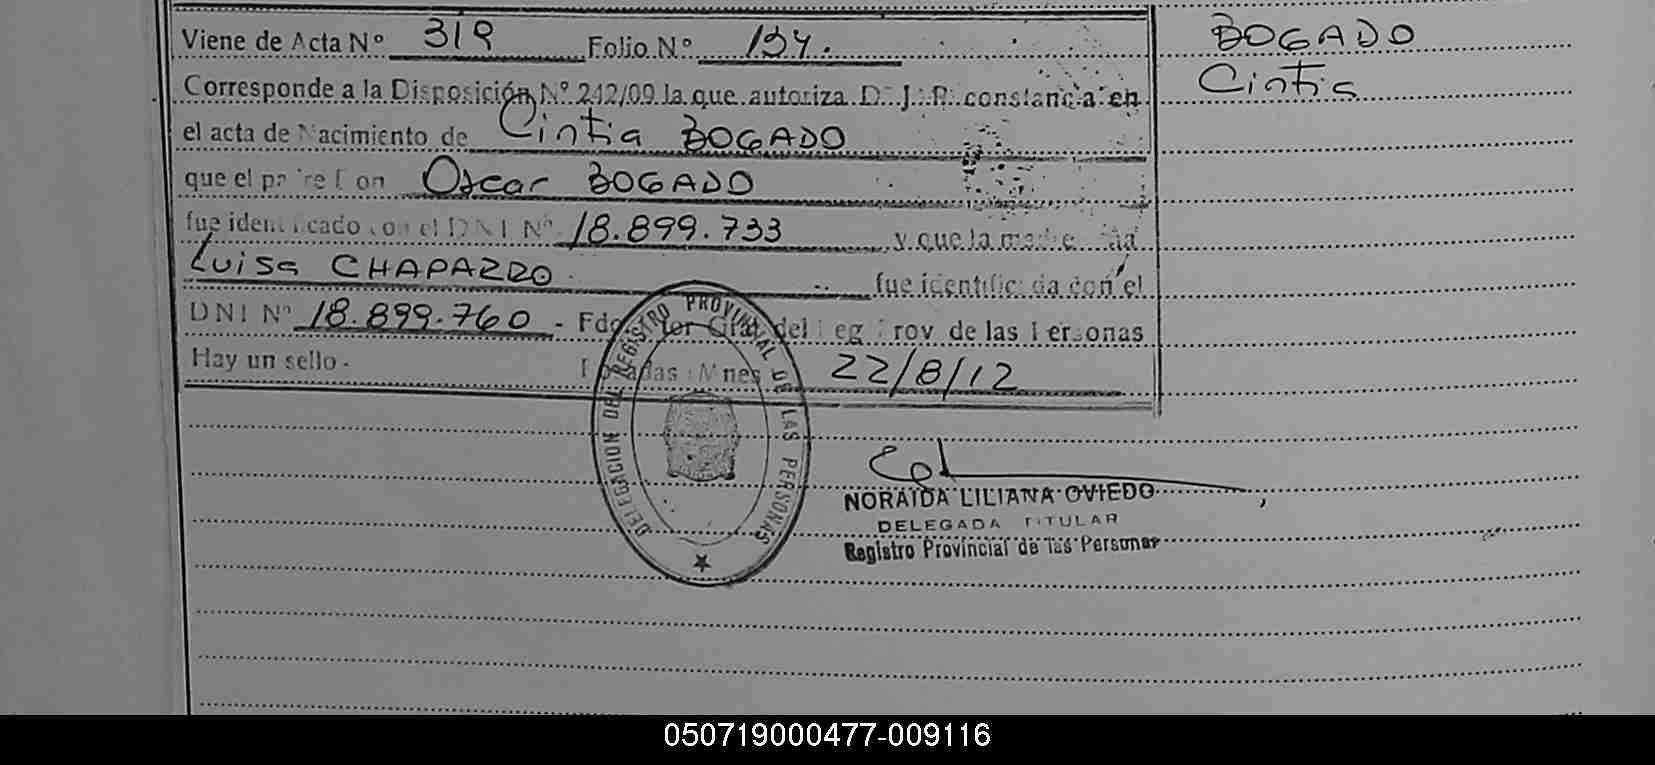 Viene de Acta Nº 319 Folio Nº 134.
Corresponde a la Disposición Nº 242/09 la que autoriza D. J. R. constancia en
el acta de Nacimiento de Cintia BOGADO
que el padre Don Oscar BOGADO
fue identificado con el DNI Nº 18.899.733 y que la madre Dña
Luisa CHAPARRO fue identificada con el
DNI Nº 18.899.760 - Fdo. Director Gral del Reg Prov de las Personas
Hay un sello - Posadas Mnes 22/8/12
BOGADO
Cintia
DELEGACION DEL REGISTRO PROVINCIAL DE LAS PERSONAS
NORAIDA LILIANA OVIEDO
DELEGADA TITULAR
Registro Provincial de las Personas
050719000477-009116